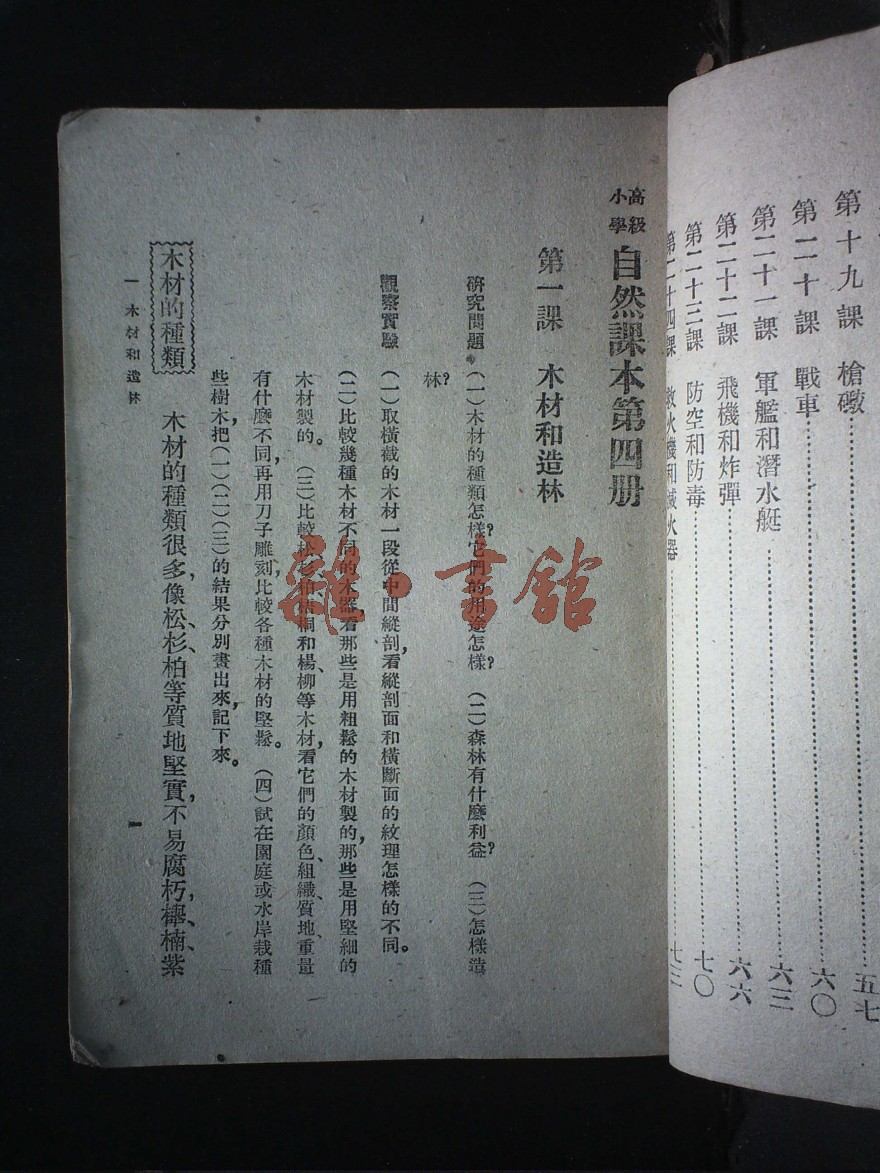 第十九課　槍礮………五七
第二十課　戰車………六〇
第二十一課　軍艦和潛水艇………六三
第二十二課　飛機和炸彈………六六
第二十三課　防空和防毒………七〇
第二十四課　救火機和滅火器………七三
高級小學
自然課本第四册
第一課　木材和造林
研究問題　(一)木材的種類怎樣?它們的用途怎樣?　(二)森林有什麼利益?　(三)怎樣造
林?
觀察實驗　(一)取橫截的木材一段從中間縱剖,看縱剖面和橫斷面的紋理怎樣的不同。
(二)比較幾種木材不同的木器,看那些是用粗鬆的木材製的,那些是用堅細的
木材製的。　(三)比較松、杉、柏、梧桐和楊、柳等木材,看它們的顏色、組織、質地、重量
有什麼不同,再用刀子雕刻,比較各種木材的堅鬆。　(四)試在園庭或水岸栽種
些樹木,把(一)(二)(三)的結果分別畫出來,記下來。
木材的種類　木材的種類很多,像松、杉、柏等質地堅實,不易腐朽,櫸、楠、紫
一　木材和造林
一
雜·書館